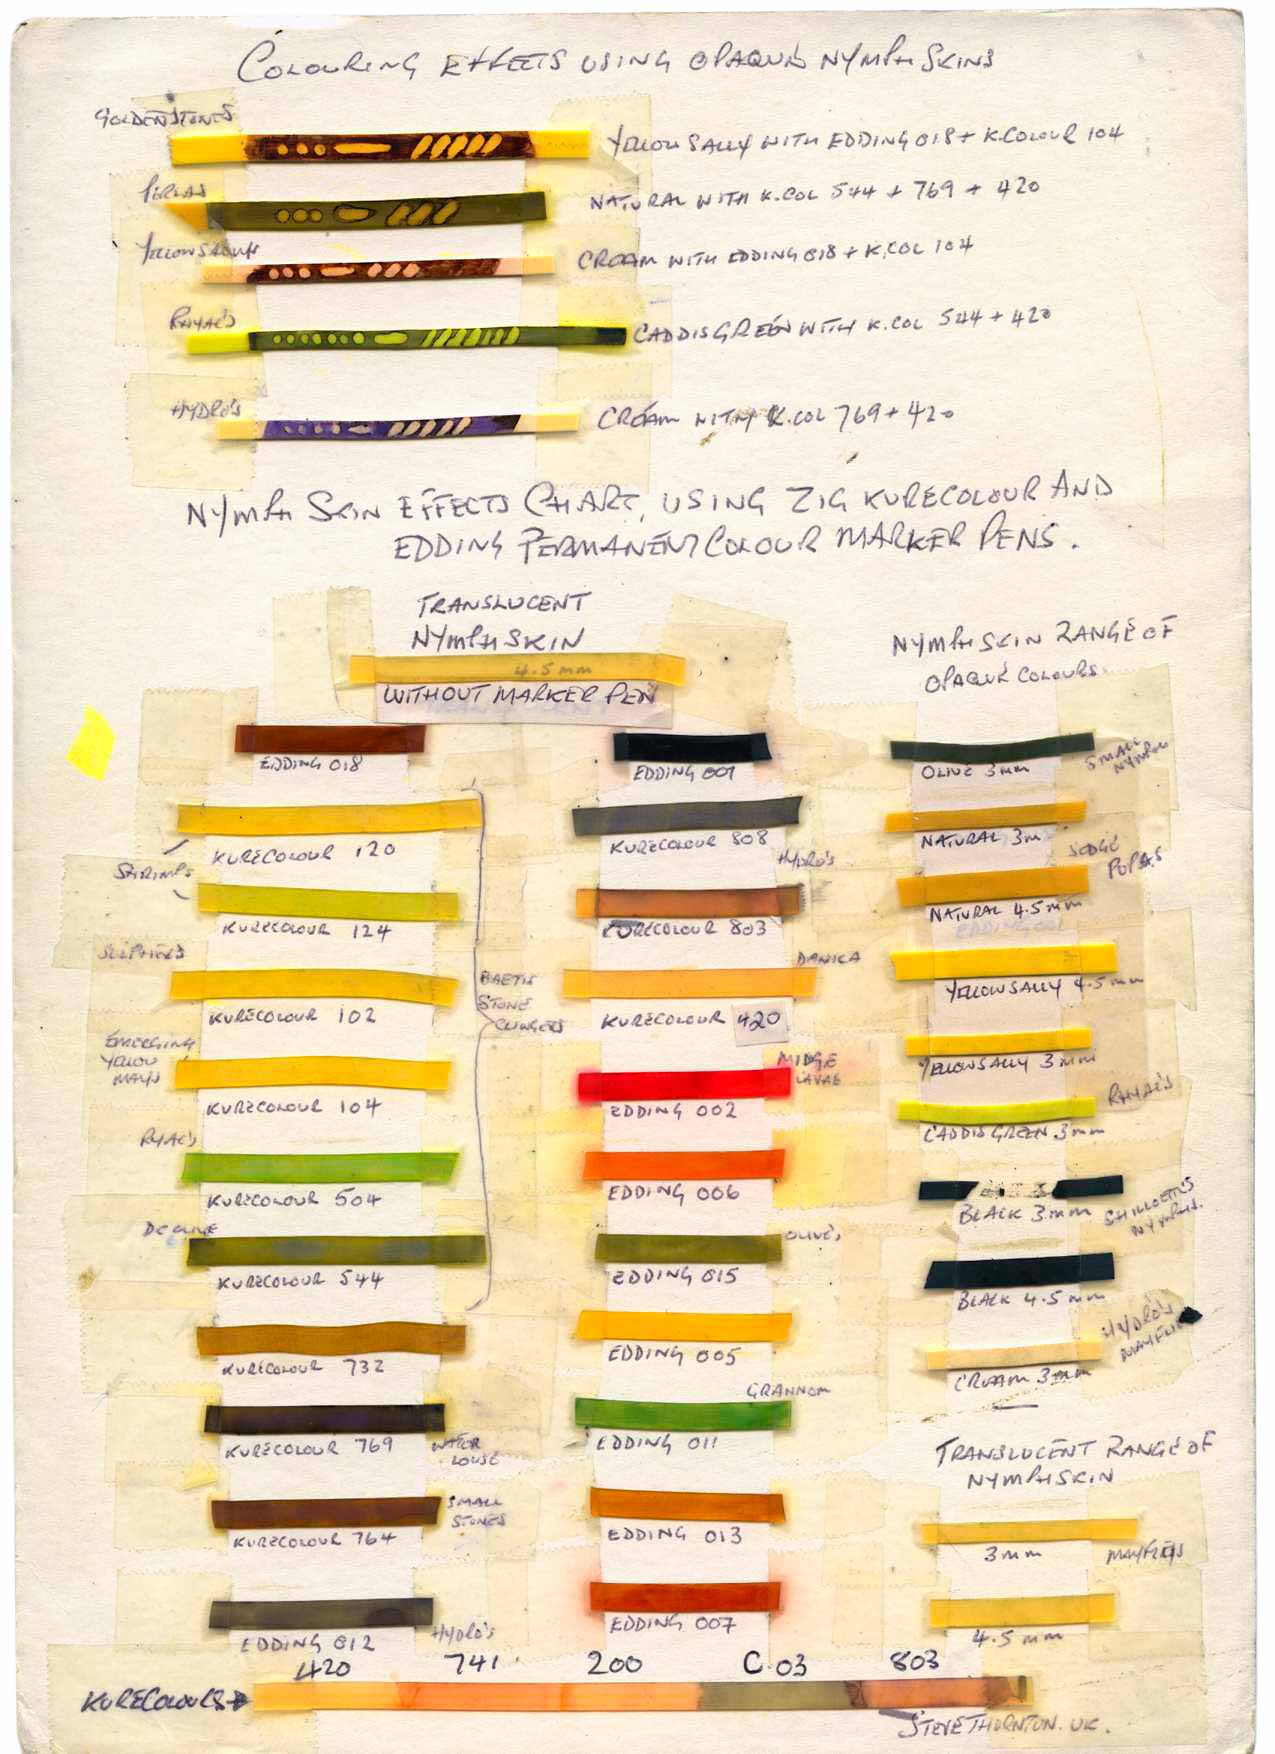 COLOURING EFFECTS USING OPAQUE NYMPH SKINS
GOLDEN STONES
YELLOW SALLY WITH EDDING 018 + K.COLOUR 104
PERLAS
NATURAL WITH K.COL 544 + 769 + 420
YELLOW SALLY
CREAM WITH EDDING 018 + K.COL 104
RHYAC'S
CADDIS GREEN WITH K.COL 544 + 420
HYDRO'S
CREAM WITH K.COL 769 + 420
NYMPH SKIN EFFECTS CHART, USING ZIG KURECOLOUR AND
EDDING PERMANENT COLOUR MARKER PENS.
TRANSLUCENT
NYMPH SKIN
4.5mm
WITHOUT MARKER PEN
EDDING 018
KURECOLOUR 120
SHRIMPS
KURECOLOUR 124
SULPHERS
KURECOLOUR 102
EMERGING
YELLOW
MAYS
KURECOLOUR 104
RYAC'S
KURECOLOUR 504
KURECOLOUR 544
KURECOLOUR 732
KURECOLOUR 769
WATER
LOUSE
KURECOLOUR 764
SMALL
STONES
EDDING 012
HYDRO'S
BAETIS
STONE
CLINGERS
EDDING 001
KURECOLOUR 808
HYDRO'S
KURECOLOUR 803
DANICA
KURECOLOUR 420
MIDGE
LAVAE
EDDING 002
EDDING 006
OLIVE'S
EDDING 015
EDDING 005
GRANNOM
EDDING 011
EDDING 013
EDDING 007
NYMPH SKIN RANGE OF
OPAQUE COLOURS
OLIVE 3mm
SMALL
NYMPH
NATURAL 3m
SEDGE
PUPAS
NATURAL 4.5mm
YELLOW SALLY 4.5mm
YELLOW SALLY 3mm
RHYAC'S
CADDIS GREEN 3mm
BLACK 3mm
NYMPHS.
BLACK 4.5mm
HYDRO'S
CREAM 3mm
TRANSLUCENT RANGE OF
NYMPH SKIN
3mm
4.5mm
420 741 200 C.03 803
KURECOLOURS
STEVE THORNTON. UK.